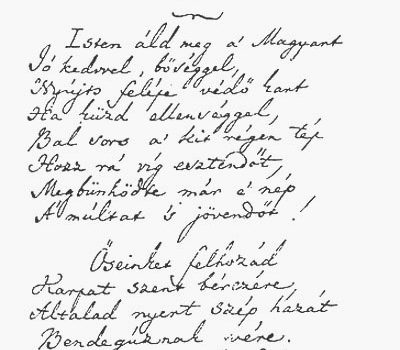 Isten áld meg a' Magyart
Jó kedvvel, bőséggel,
Nyújts feléje védő kart
Ha küzd ellenséggel,
Bal sors a' kit régen tép
Hozz rá víg esztendőt,
Megbünhödte már e' nép
A' múltat 's jövendőt!
Őseinket felhozád
Kárpát szent bérczére,
Általad nyert szép hazát
Bendegúznak vére.